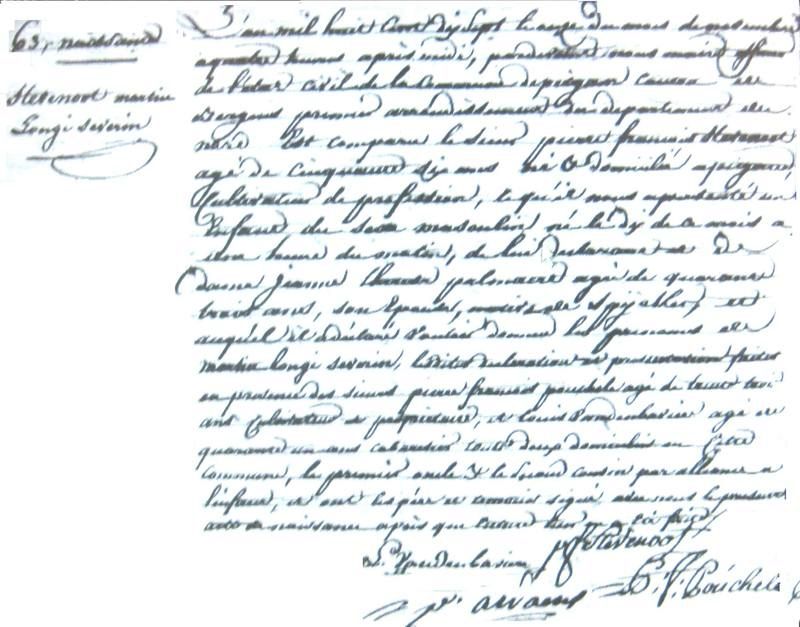 63, naissance
Stevenoot martin
Longi severin
L'an mil huit Cent dix Sept le onze du mois de novembre
a quatre heures après midi, pardevant nous maire officier
de l'état civil de la Commune de pitgam Canton de
Bergues premier arrondissement du departement du
nord Est comparu le Sieur pierre françois Stevenoot
agé de Cinquante Six ans né & domicilié a pitgam
Cultivateur de profession, lequel nous a présenté un
Enfant du sexe masculin né le dix de ce mois a
une heure du matin, de lui declarant et de
dame jeanne palmaere agée de quarante
trois ans, son Epouse, native de Spycker, et
auquel il a déclaré vouloir donner les prenoms de
martin Longi severin, lesdites declaration et presentation faites
en presence des sieurs pierre françois pouchele agé de trente trois
ans Cultivateur et propriétaire, et Louis Vandenbavière agé de
quarante un ans cabaretier tous deux domiciliés en Cette
Commune, le premier oncle & le second cousin par alliance a
l'enfant, et ont les père et temoins signé avec nous le present
acte de naissance après que lecture leur en a été faite
p f Stevenoot
L. Vandenbavière
P. f. Pouchele